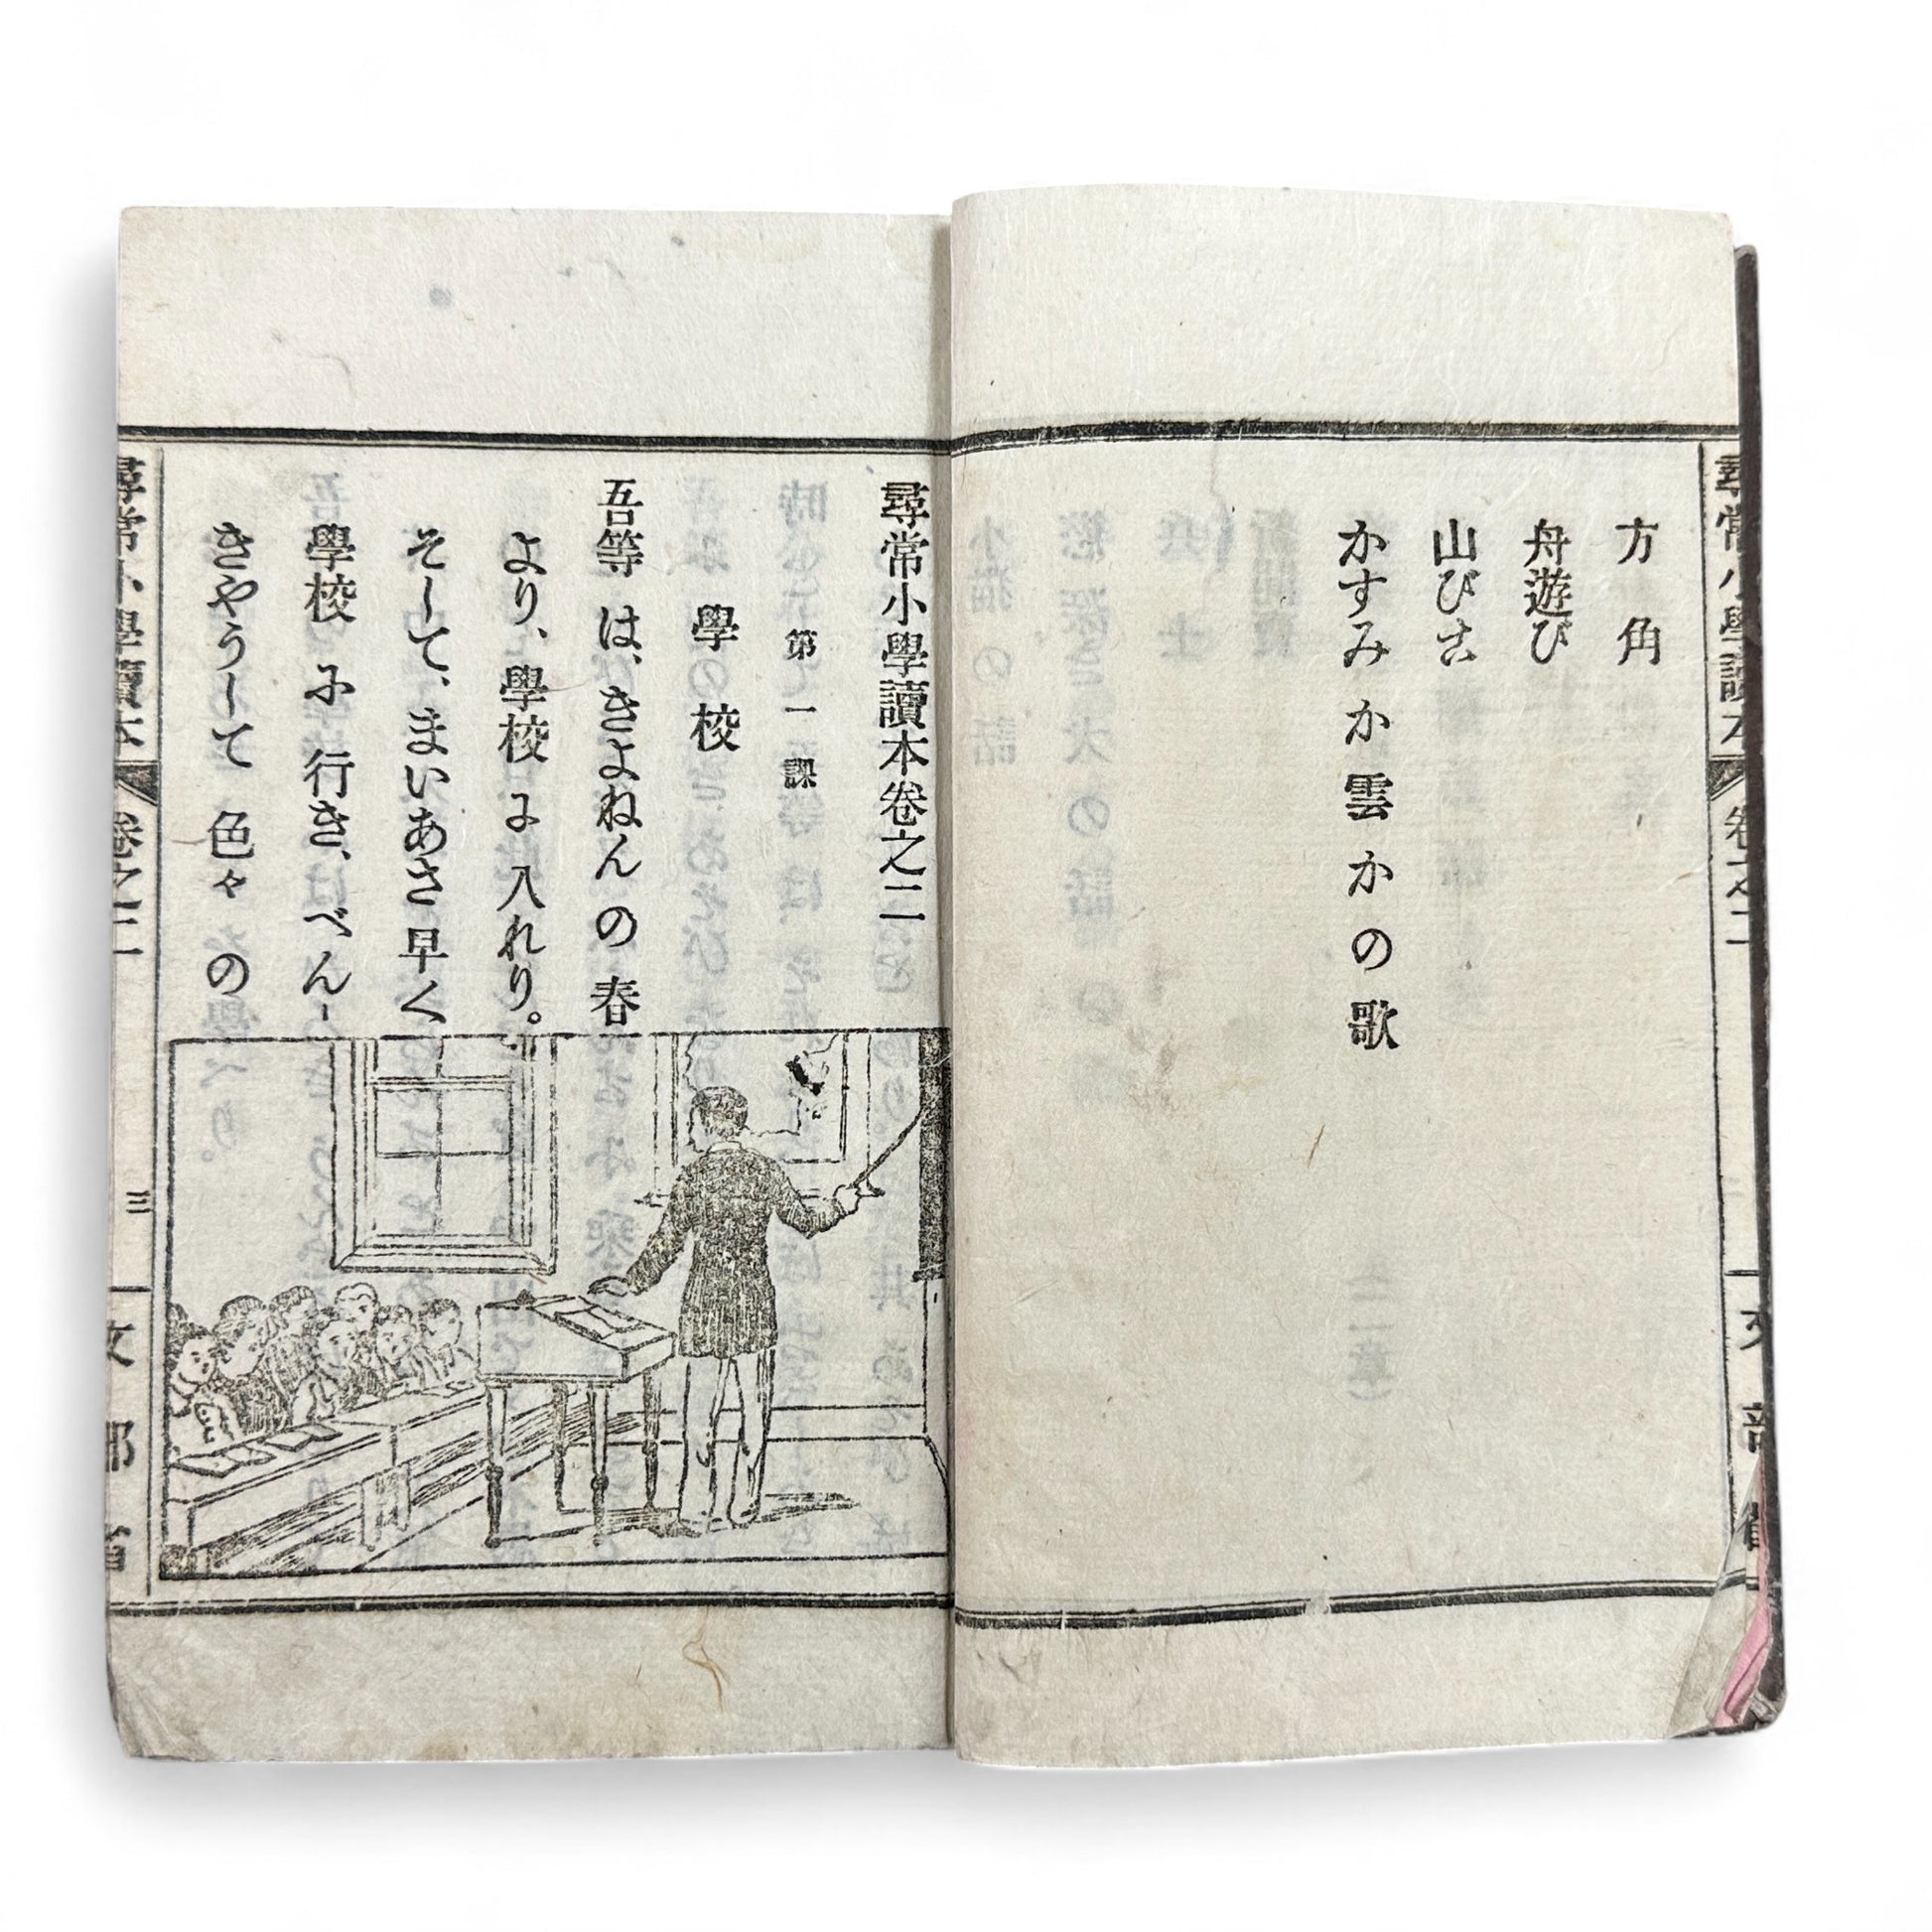 方角
舟遊び
山びこ
かすみか雲かの歌
尋常小學讀本卷之二
第一課
學校
吾等は、きよねんの春
より、學校に入れり。
そして、まいあさ早く
學校に行き、べん-
きやうして色々の
尋常小學讀本
卷之二
三
文部省